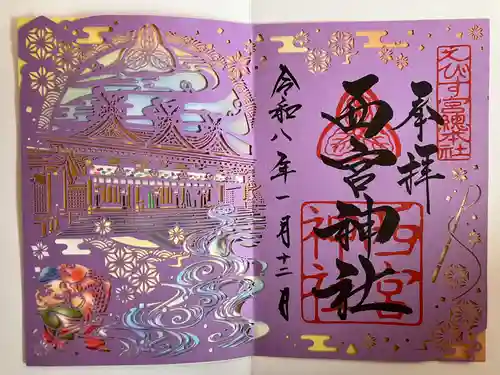 えびす宮総本社
奉拝
西宮神社
西宮神社
令和八年一月十二日